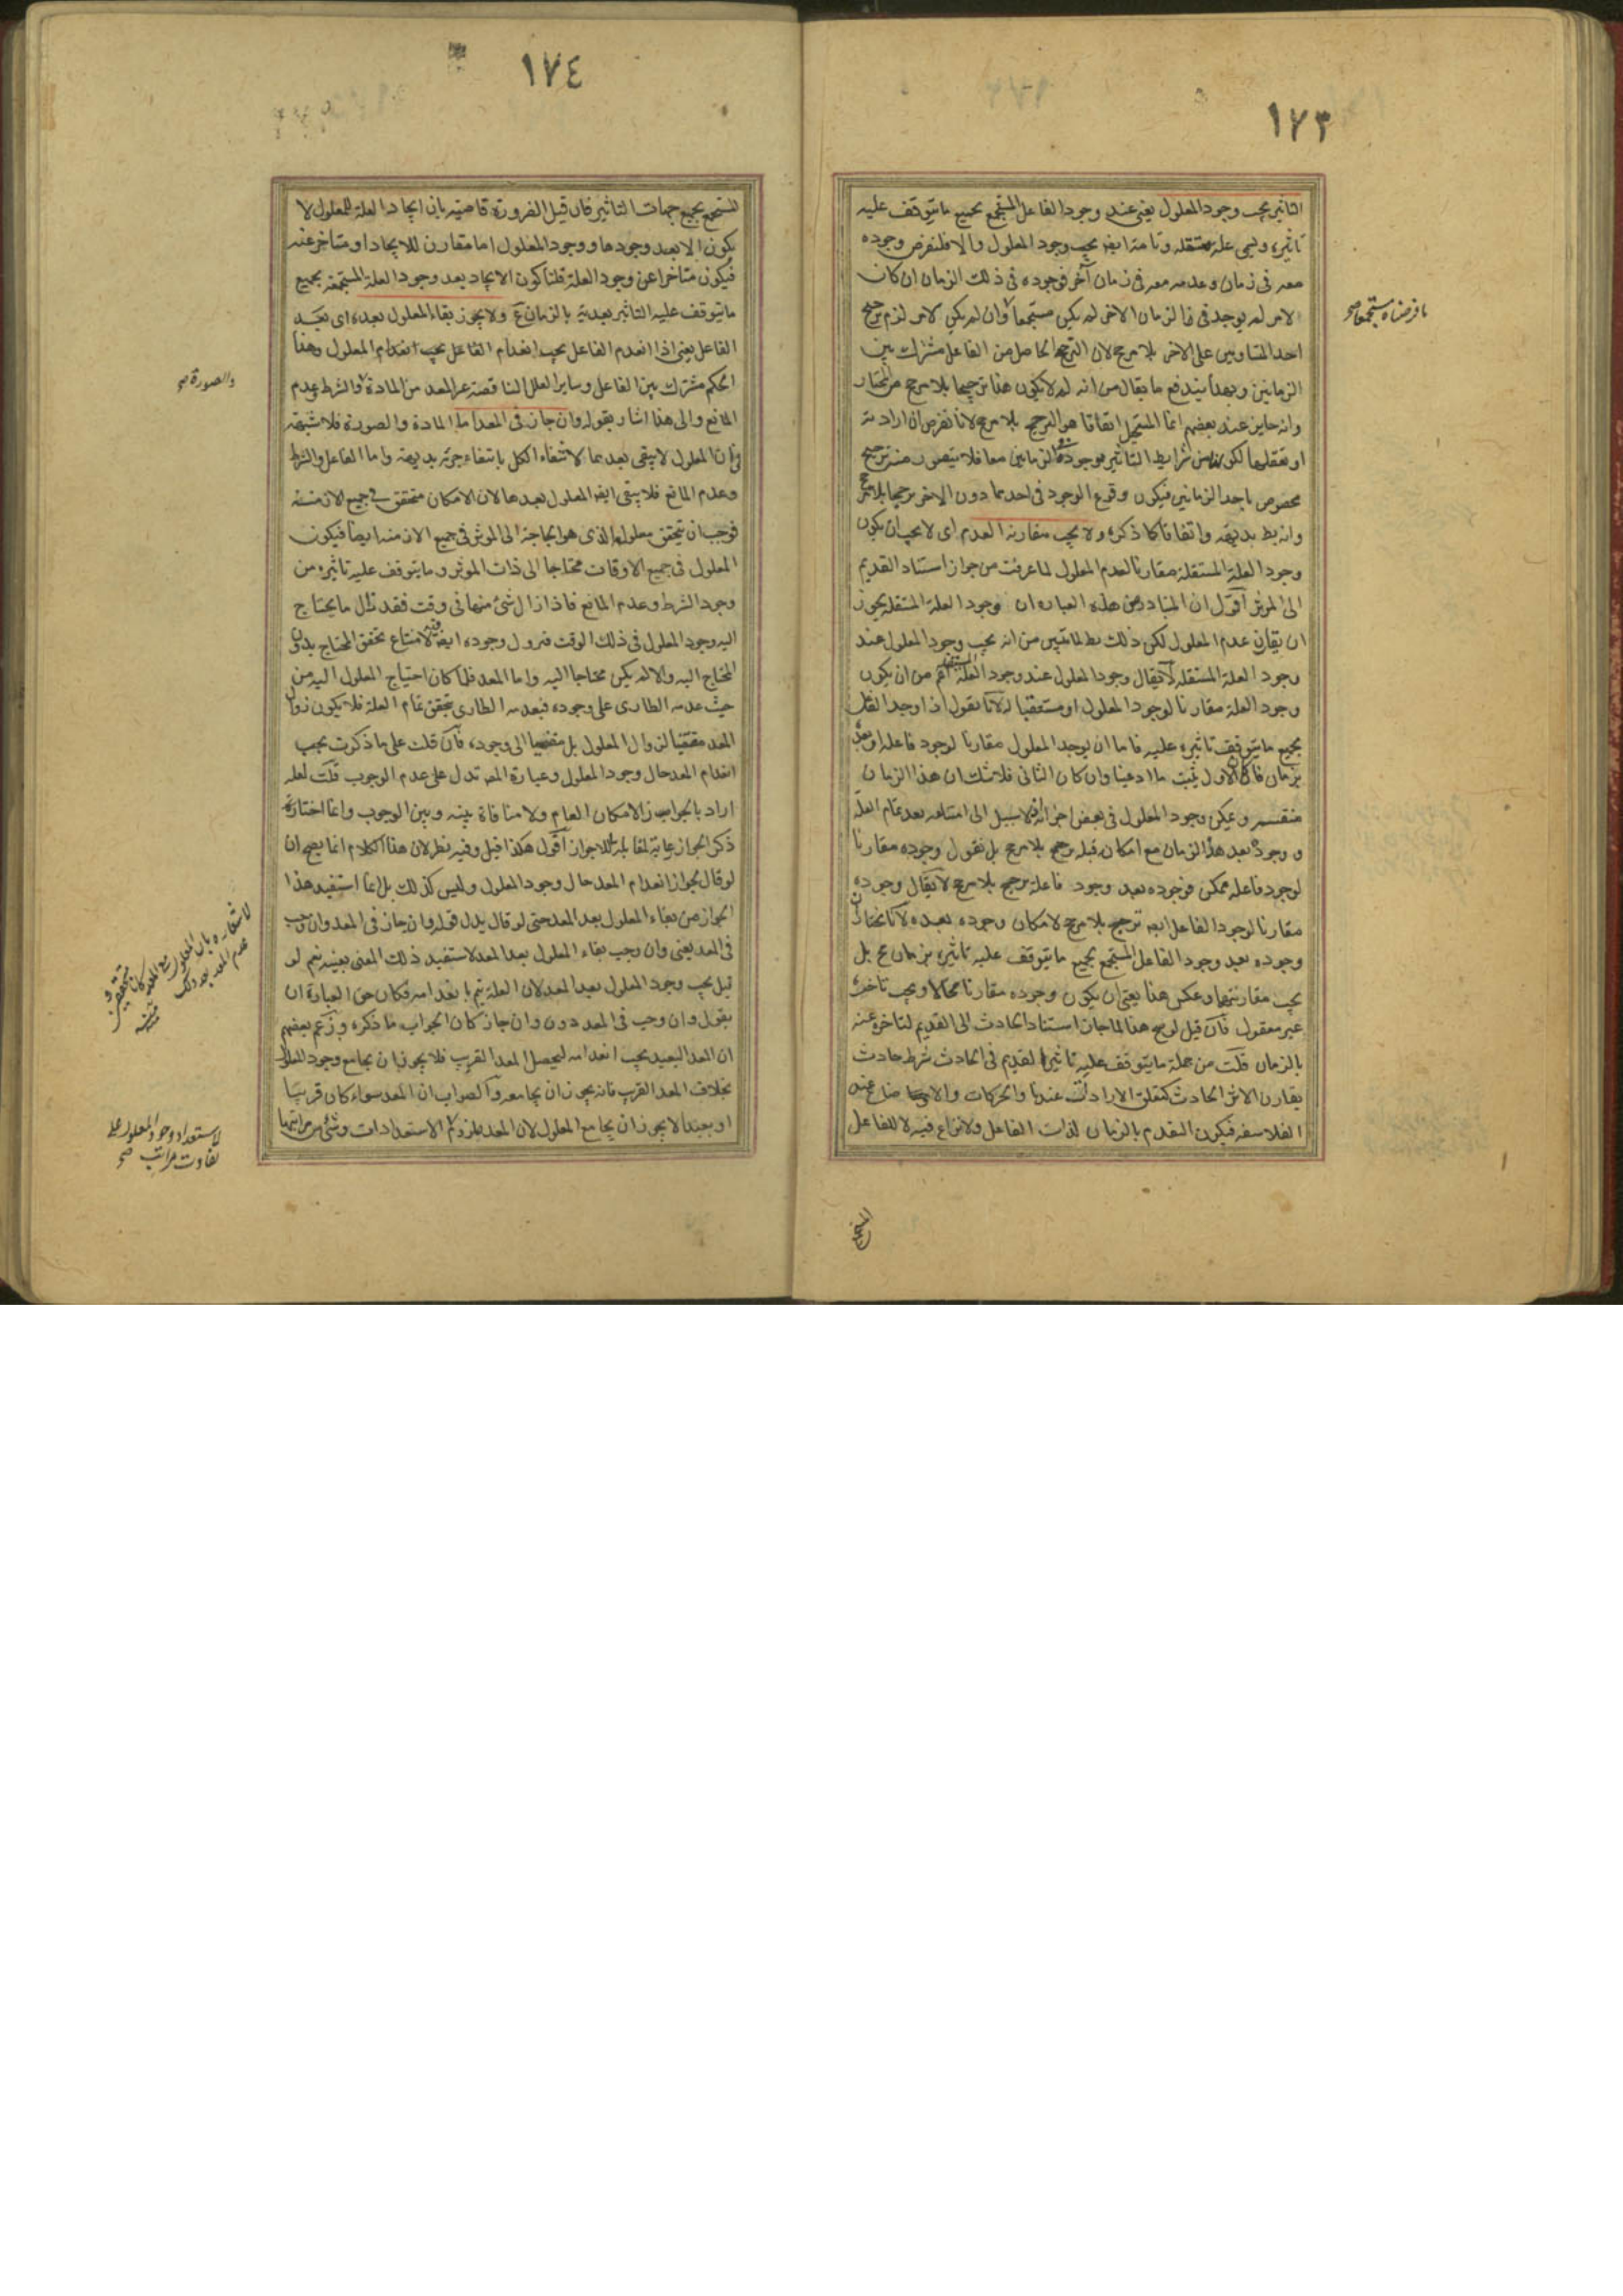 ١٧٣
التاثير يجب وجود المعلول يعنى عند وجود الفاعل المستجمع بجميع ما يتوقف عليه
تاثيره ويسمى علة مستقلة وتامة ايضا يجب وجود المعلول والا فلنفرض وجوده
معه فى زمان وعدمه معه فى زمان آخر فوجوده فى ذلك الزمان ان كان
لامر لم يوجد فى الزمان الاخر لم يكن مستجمعا وان لم يكن لامر لزم ترجيح
ما فرضناه مستجمعا صح
احد المتساويين على الاخر بلا مرجح لان الترجيح الحاصل من الفاعل مشترك بين
الزمانين وبهذا يندفع ما يقال من انه لم لا يكون هذا ترجيحا بلا مرجح من المختار
وانه جايز عند بعضهم انما المستحيل اتفاقا هو الترجح بلا مرجح لانا نفرض ان ارادته
او تعقلها لكونهما من شرايط التاثير موجودة فى الزمانين معا فلا يتصور منه ترجيح
مخصوص باحد الزمانين فيكون وقوع الوجود فى احدهما دون الاخر ترجحا بلا مرجح
وانه بط بديهة واتفاقا كما ذكره ولا يجب مقارنة العدم اى لا يجب ان يكون
وجود العلة المستقلة مقارنا لعدم المعلول لما عرفت من جواز استناد القديم
الى المؤثر اقول ان المتبادر من هذه العبارة ان وجود العلة المستقلة يجوز
ان يقارن عدم المعلول لكن ذلك بط لما تبين من انه يجب وجود المعلول عند
وجود العلة المستقلة لا يقال وجود المعلول عند وجود العلة المستقلة اعم من ان يكون
وجود العلة مقارنا لوجود المعلول او مستعقبا له لانا نقول اذا وجد الفاعل
بجميع ما يتوقف تاثيره عليه فاما ان يوجد المعلول مقارنا لوجود فاعله او بعده
بزمان فان كان الاول ثبت ما ادعينا وان كان الثانى فلا شك ان هذا الزمان
منقسم ويمكن وجود المعلول فى بعض اجزائه فلا سبيل الى امتناعه بعد تمام العلة
ووجوده بعد هذا الزمان مع امكان قبله ترجح بلا مرجح بل نقول وجوده مقارنا
لوجود فاعله ممكن فوجوده بعد وجود فاعله ترجح بلا مرجح لا يقال وجوده
مقارنا لوجود الفاعل ايضا ترجيح بلا مرجح لامكان وجوده بعده لانا نختار ان
وجوده بعد وجود الفاعل المستجمع بجميع ما يتوقف عليه تاثيره بزمان مح بل
يجب مقارنتهما وعكس هذا يعنى ان يكون وجوده مقارنا محالا ويجب تاخره
غير معقول فان قيل لو صح هذا لما جاز استناد الحادث الى القديم لتاخره عنه
بالزمان قلت من جملة ما يتوقف عليه تاثير القديم فى الحادث شرط حادث
يقارن الاثر الحادث كتعلق الارادة عندنا والحركات والاوضاع عند
الفلاسفه فيكون التقدم بالزمان لذات الفاعل ولا نزاع فيه لا للفاعل
المستجمع
١٧٤
المستجمع بجميع جهات التاثير فان قيل الضرورة قاضية بان ايجاد العلة للمعلول لا
يكون الا بعد وجودها ووجود المعلول اما مقارن للايجاد او متاخر عنه
فيكون متاخرا عن وجود العلة قلنا كون الايجاد بعد وجود العلة المستجمعة بجميع
ما يتوقف عليه التاثير بعدية بالزمان مح ولا يجوز بقاء المعلول بعده اى بعد
الفاعل يعنى اذا انعدم الفاعل يجب انعدام الفاعل يجب انعدام المعلول وهذا
الحكم مشترك بين الفاعل وساير العلل الناقصة غير المعد من المادة والشرط وعدم
والصورة صح
المانع والى هذا اشار بقوله وان جاز فى المعد اما المادة والصورة فلا شبهة
فى ان المعلول لا يبقى بعدهما لانتفاء الكل بانتفاء جزئه بديهة واما الفاعل والشرط
وعدم المانع فلا يبقى ايضا المعلول بعدها لان الامكان متحقق فى جميع الازمنة
فوجب ان يتحقق معلوله الذى هو الحاجة الى المؤثر فى جميع الازمنة ايضا فيكون
المعلول فى جميع الاوقات محتاجا الى ذات المؤثر وما يتوقف عليه تاثيره من
وجود الشرط وعدم المانع فاذا زال شئ منها فى وقت فقد زال ما يحتاج
اليه وجود المعلول فى ذلك الوقت فيزول وجوده ايضا فيه لامتناع تحقق المحتاج بدون
المحتاج اليه والا لم يكن محتاجا اليه واما المعد فلما كان احتياج المعلول اليه من
حيث عدمه الطارى على وجوده فبعدمه الطارى يتحقق تمام العلة فلا يكون زوال
المعد مقتضيا لزوال المعلول بل مفضيا الى وجوده فان قلت على ما ذكرت يجب
انعدام المعد حال وجود المعلول وعبارة المص تدل على عدم الوجوب قلت لعله
اراد بالجواز الامكان العام ولا منافاة بينه وبين الوجوب وانما اختار
ذكر الجواز رعاية لمقابلة اللاجواز اقول هكذا قيل وفيه نظر لان هذا الكلام انما يصح ان
لو قال بجواز انعدام المعد حال وجود المعلول وليس كذلك بل انما استفيد هذا
الجواز من بقاء المعلول بعد المعد حتى لو قال بدل قوله وان جاز فى المعد وان وجب
فى المعد يعنى وان وجب بقاء المعلول بعد المعد لاستفيد ذلك المعنى بعينه نعم لو
قيل يجب وجود المعلول بعد المعد لان العلة يتم بانعدامه فكان حق العبارة ان
يقول وان وجب فى المعد دون وان جاز كان الجواب ما ذكره وزعم بعضهم
ان المعد البعيد يجب انعدامه ليحصل المعد القريب فلا يجوز ان يجامع وجود المعلول
بخلاف المعد القريب فانه يجوز ان يجامعه والصواب ان المعد سواء كان قريبا
او بعيدا لا يجوز ان يجامع المعلول لان المعد ملزوم الاستعدادات وشئ من مراتبها
لاستعداد وجود المعلول على
تفاوت مراتب صح